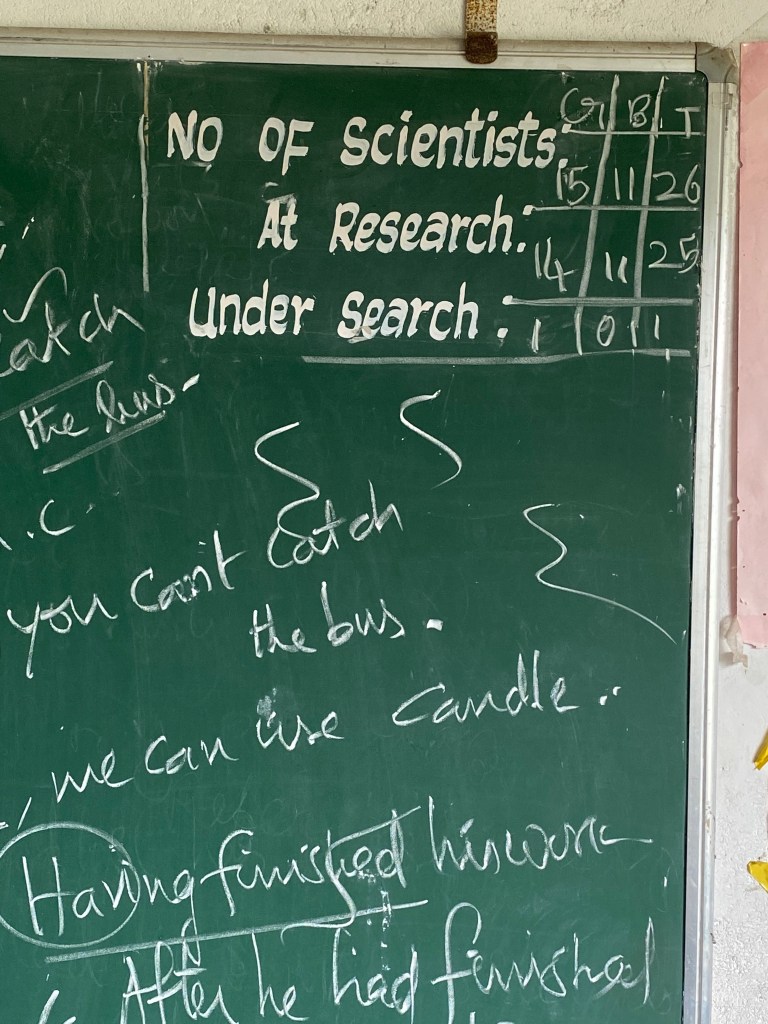 G B T
NO OF Scientists: 15 11 26
At Research: 14 11 25
Under Search: 1 0 1
catch
the bus.
.C.
you can't catch
the bus.
we can use candle.
Having finished his work
After he had finished